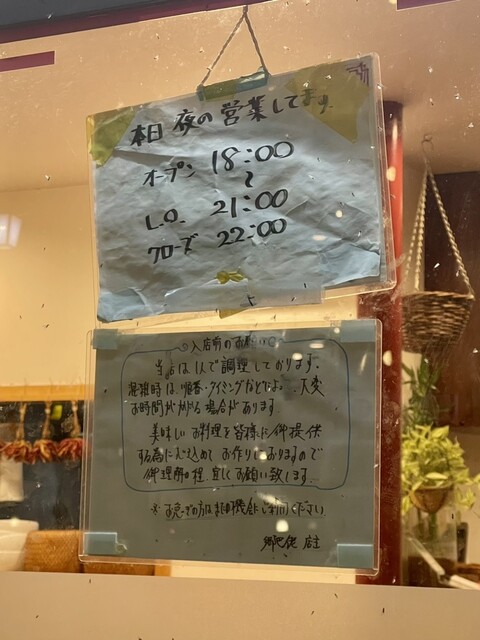 本日 夜の営業してます。
オープン 18:00
〜
L.O. 21:00
クローズ 22:00
入店前のお願い
当店は1人で調理しております。
混雑時は、順番・タイミングなどにより 大変
お時間がかかる場合があります。
美味しいお料理を皆様に御提供
する為に心込めてお作りしておりますので
御理解の程、宜しくお願い致します。
※お急ぎの方は またの機会に ご利用ください。
店主